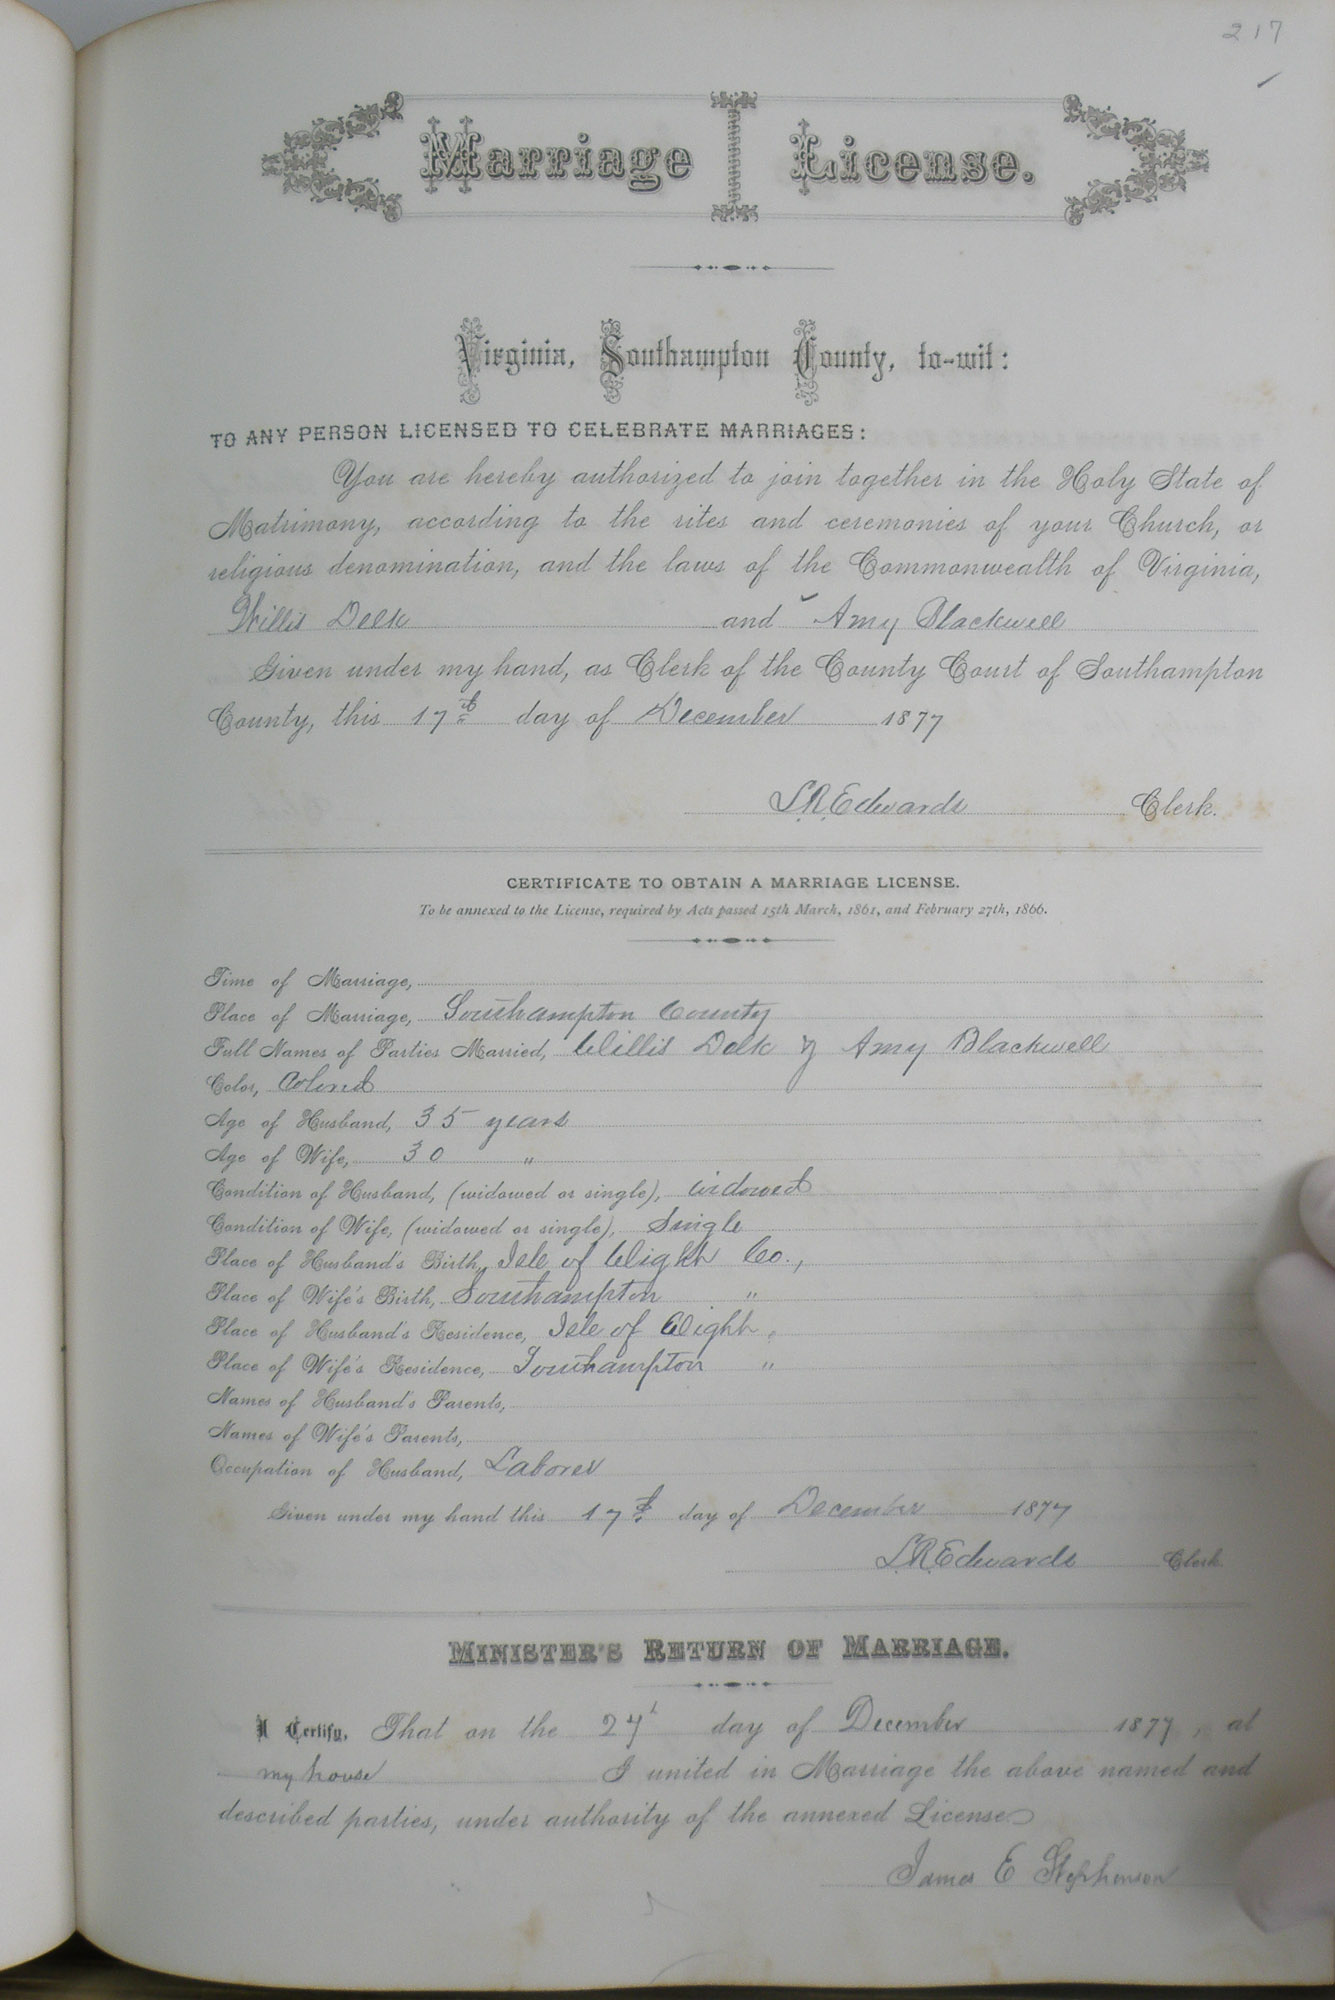 217
Marriage License.
Virginia, Southampton County, to-wit:
TO ANY PERSON LICENSED TO CELEBRATE MARRIAGES:
You are hereby authorized to join together in the Holy State of
Matrimony, according to the rites and ceremonies of your Church, or
religious denomination, and the laws of the Commonwealth of Virginia,
Willis Delk and Amy Blackwell
Given under my hand, as Clerk of the County Court of Southampton
County, this 17th day of December 1877
L.R. Edwards Clerk.
CERTIFICATE TO OBTAIN A MARRIAGE LICENSE.
To be annexed to the License, required by Acts passed 15th March, 1861, and February 27th, 1866.
Time of Marriage,
Place of Marriage, Southampton County
Full Names of Parties Married, Willis Delk & Amy Blackwell
Color, Colored
Age of Husband, 35 years
Age of Wife, 30 "
Condition of Husband, (widowed or single), widowed
Condition of Wife, (widowed or single), Single
Place of Husband's Birth, Isle of Wight Co.,
Place of Wife's Birth, Southampton "
Place of Husband's Residence, Isle of Wight "
Place of Wife's Residence, Southampton "
Names of Husband's Parents,
Names of Wife's Parents,
Occupation of Husband, Laborer
Given under my hand this 17th day of December 1877
L.R. Edwards Clerk
MINISTER'S RETURN OF MARRIAGE.
I Certify, That on the day of December 1877, at
my house I united in Marriage the above named and
described parties, under authority of the annexed License
James E Stephenson